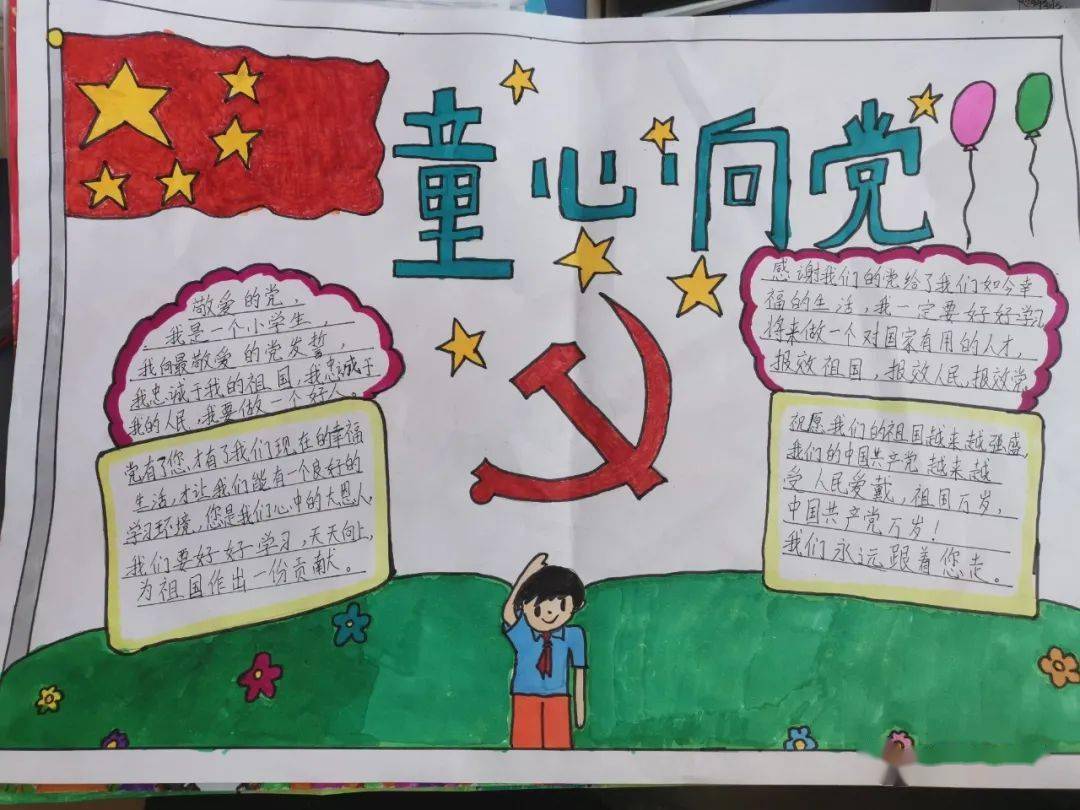 童心向党
敬爱的党，
我是一个小学生，
我向最敬爱的党发誓，
我忠诚于我的祖国，我忠诚于
我的人民，我要做一个好人。
党有了您，才有了我们现在的幸福
生活，才让我们能有一个良好的
学习环境，您是我们心中的大恩人，
我们要好好学习，天天向上，
为祖国作出一份贡献。
感谢我们的党给了我们如今幸
福的生活，我一定要好好学习
将来做一个对国家有用的人才，
报效祖国，报效人民，报效党
祝愿我们的祖国越来越强盛，
我们的中国共产党越来越
受人民爱戴，祖国万岁，
中国共产党万岁！
我们永远跟着您走。